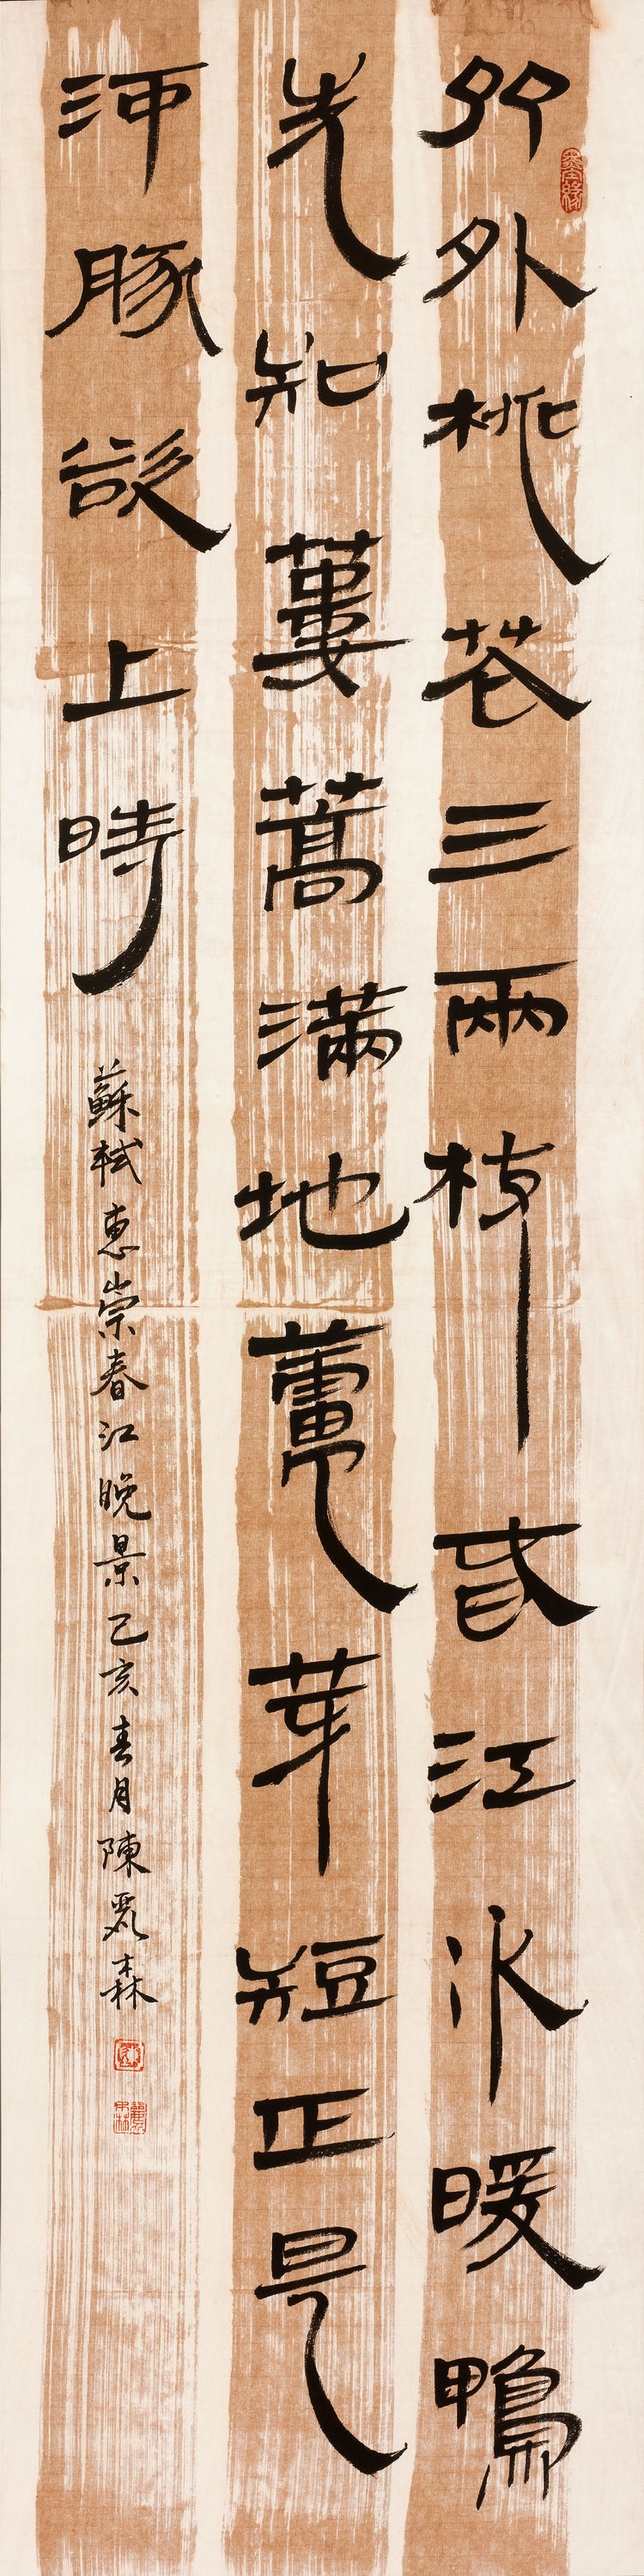 竹外桃花三兩枝春江水暖鴨
先知蔞蒿滿地蘆芽短正是
河豚欲上時
蘇軾惠崇春江晚景己亥春月陳麗森
墨緣